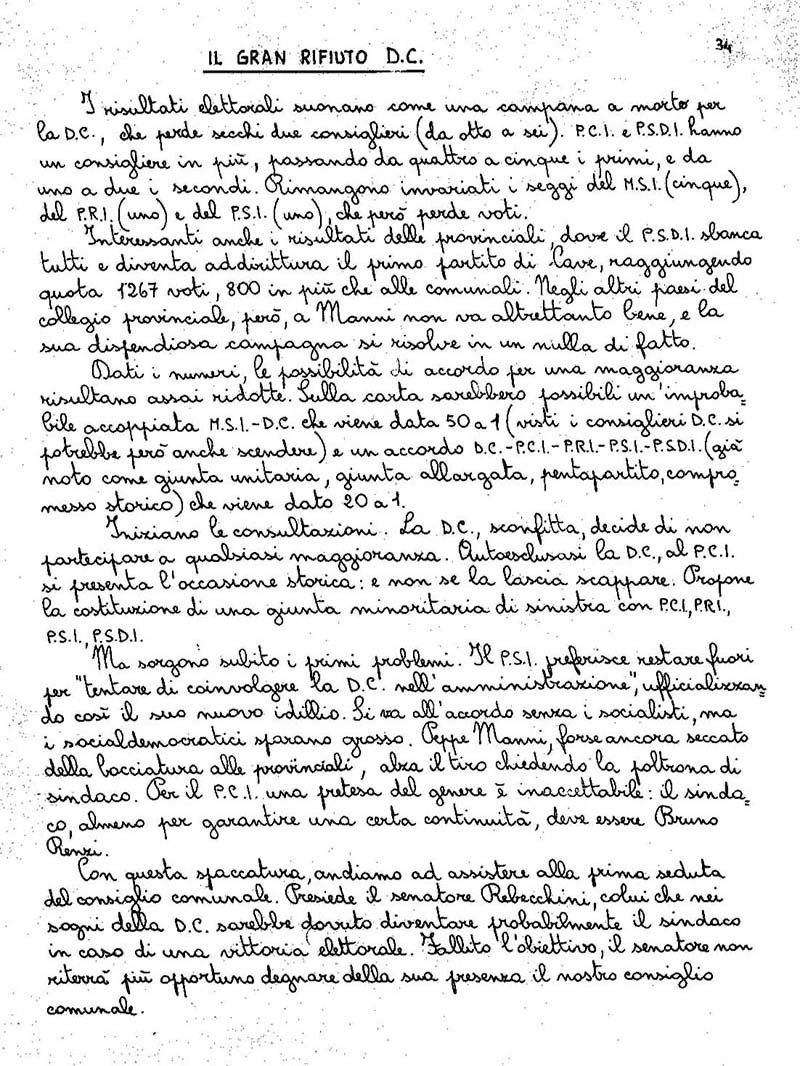 34
IL GRAN RIFIUTO D.C.
I risultati elettorali suonano come una campana a morto per
la D.C., che perde secchi due consiglieri (da otto a sei). P.C.I. e P.S.D.I. hanno
un consigliere in più, passando da quattro a cinque i primi, e da
uno a due i secondi. Rimangono invariati i seggi del M.S.I. (cinque),
del P.R.I. (uno) e del P.S.I. (uno), che però perde voti.
Interessanti anche i risultati delle provinciali, dove il P.S.D.I. sbanca
tutti e diventa addirittura il primo partito di Cave, raggiungendo
quota 1267 voti, 800 in più che alle comunali. Negli altri paesi del
collegio provinciale, però, a Manni non va altrettanto bene, e la
sua dispendiosa campagna si risolve in un nulla di fatto.
Dati i numeri, le possibilità di accordo per una maggioranza
risultano assai ridotte. Sulla carta sarebbero possibili un'improba=
bile accoppiata M.S.I.-D.C. che viene data 50 a 1 (visti i consiglieri D.C. si
potrebbe però anche scendere) e un accordo D.C.-P.C.I.-P.R.I.-P.S.I.-P.S.D.I. (già
noto come giunta unitaria, giunta allargata, pentapartito, compro=
messo storico) che viene dato 20 a 1.
Iniziano le consultazioni. La D.C., sconfitta, decide di non
partecipare a qualsiasi maggioranza. Autoesclusasi la D.C., al P.C.I.
si presenta l'occasione storica: e non se la lascia scappare. Propone
la costituzione di una giunta minoritaria di sinistra con P.C.I., P.R.I.,
P.S.I., P.S.D.I.
Ma sorgono subito i primi problemi. Il P.S.I. preferisce restare fuori
per "tentare di coinvolgere la D.C. nell'amministrazione", ufficializzan=
do così il suo nuovo idillio. Si va all'accordo senza i socialisti, ma
i socialdemocratici sparano grosso. Peppe Manni, forse ancora seccato
della bocciatura alle provinciali, alza il tiro chiedendo la poltrona di
sindaco. Per il P.C.I. una pretesa del genere è inaccettabile: il sinda=
co, almeno per garantire una certa continuità, deve essere Bruno
Renzi.
Con questa spaccatura, andiamo ad assistere alla prima seduta
del consiglio comunale. Presiede il senatore Rebecchini, colui che nei
sogni della D.C. sarebbe dovuto diventare probabilmente il sindaco
in caso di una vittoria elettorale. Fallito l'obiettivo, il senatore non
riterrà più opportuno degnare della sua presenza il nostro consiglio
comunale.